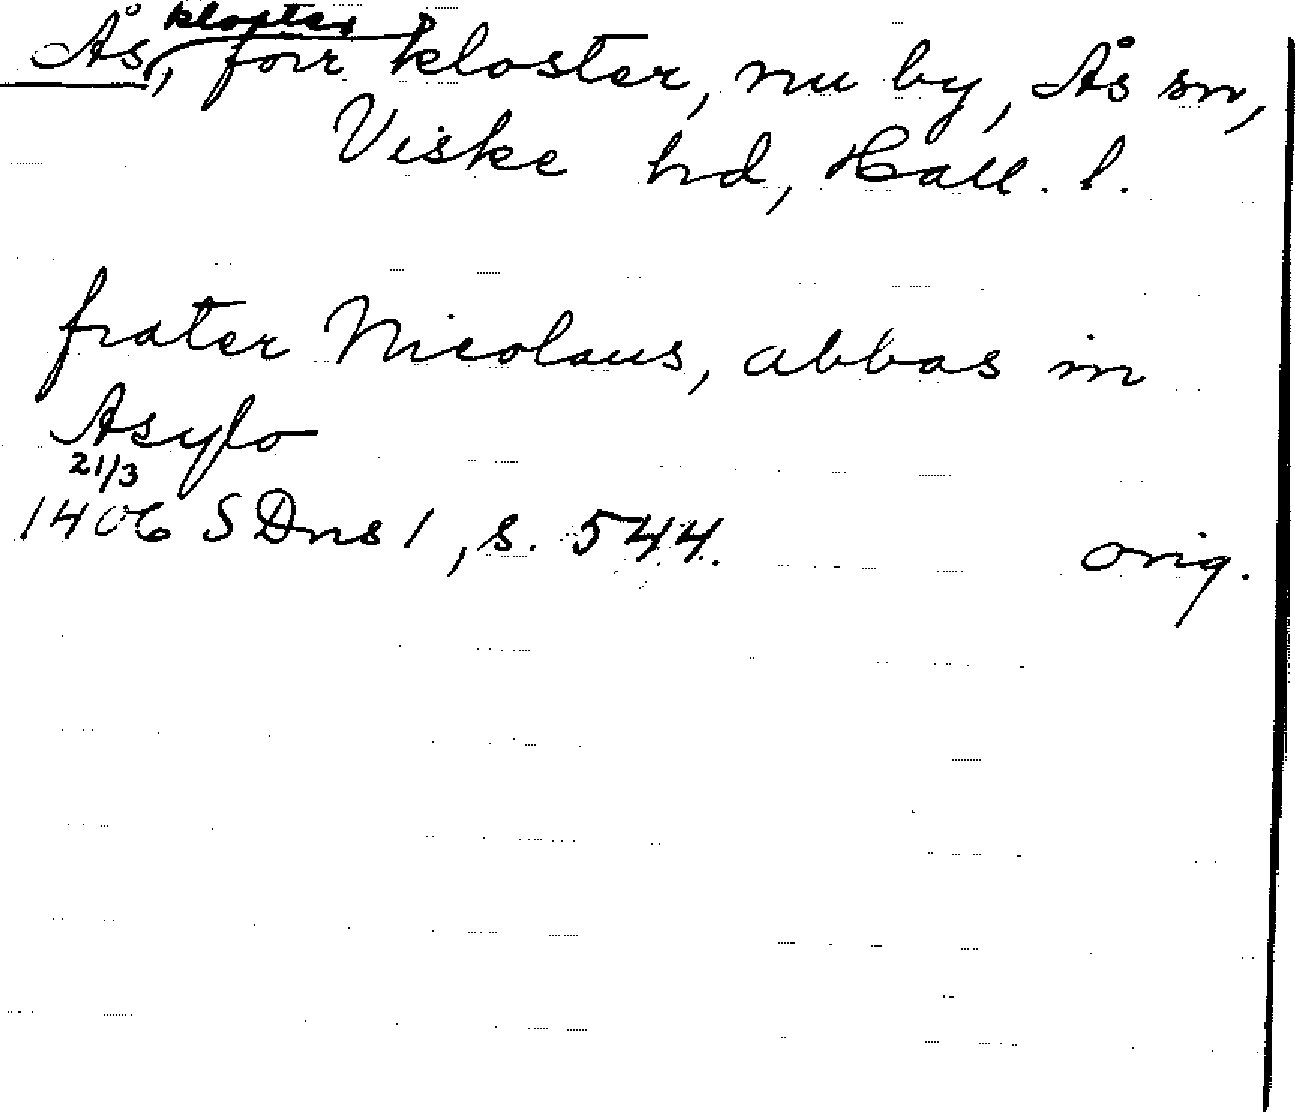 kloster
Ås, förr kloster, nu by, Ås sn,
Viske hd, Hall. l.
frater Nicolaus, abbas in
Asylo
21/3
1406 SDns 1, s. 544. orig.